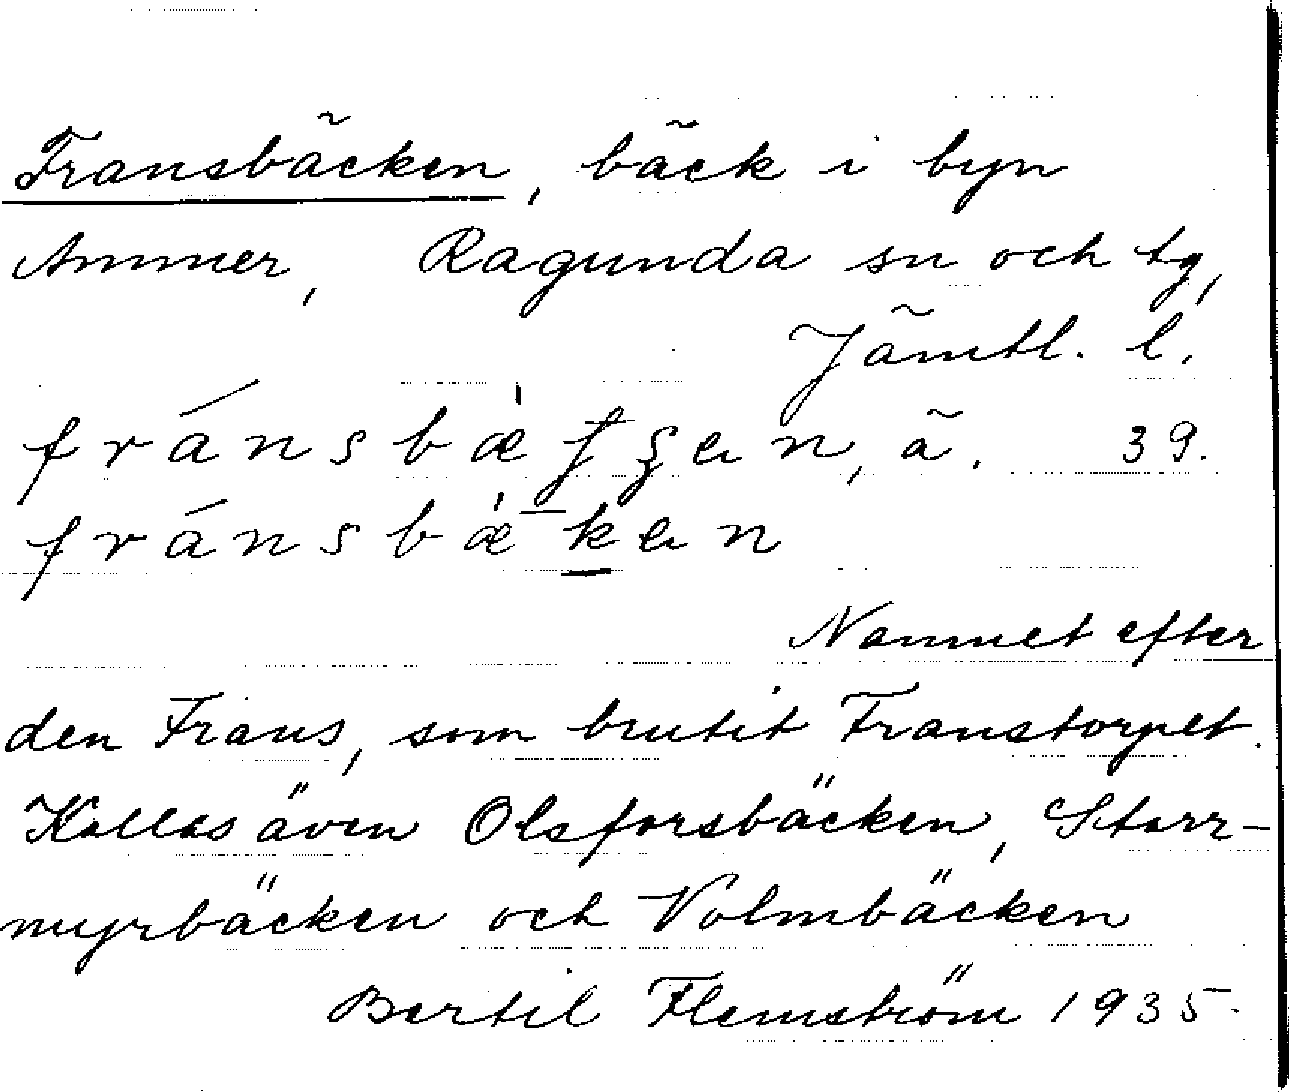 Fransbäcken, bäck i byn
Ammer, Ragunda sn och tg,
Jämtl. l.
ä. 39.
Namnet efter
den Frans, som brutit Franstorpet.
Kallas även Olsforsbäcken, Starr-
myrbäcken och Volmbäcken
Bertil Flemström 1935.